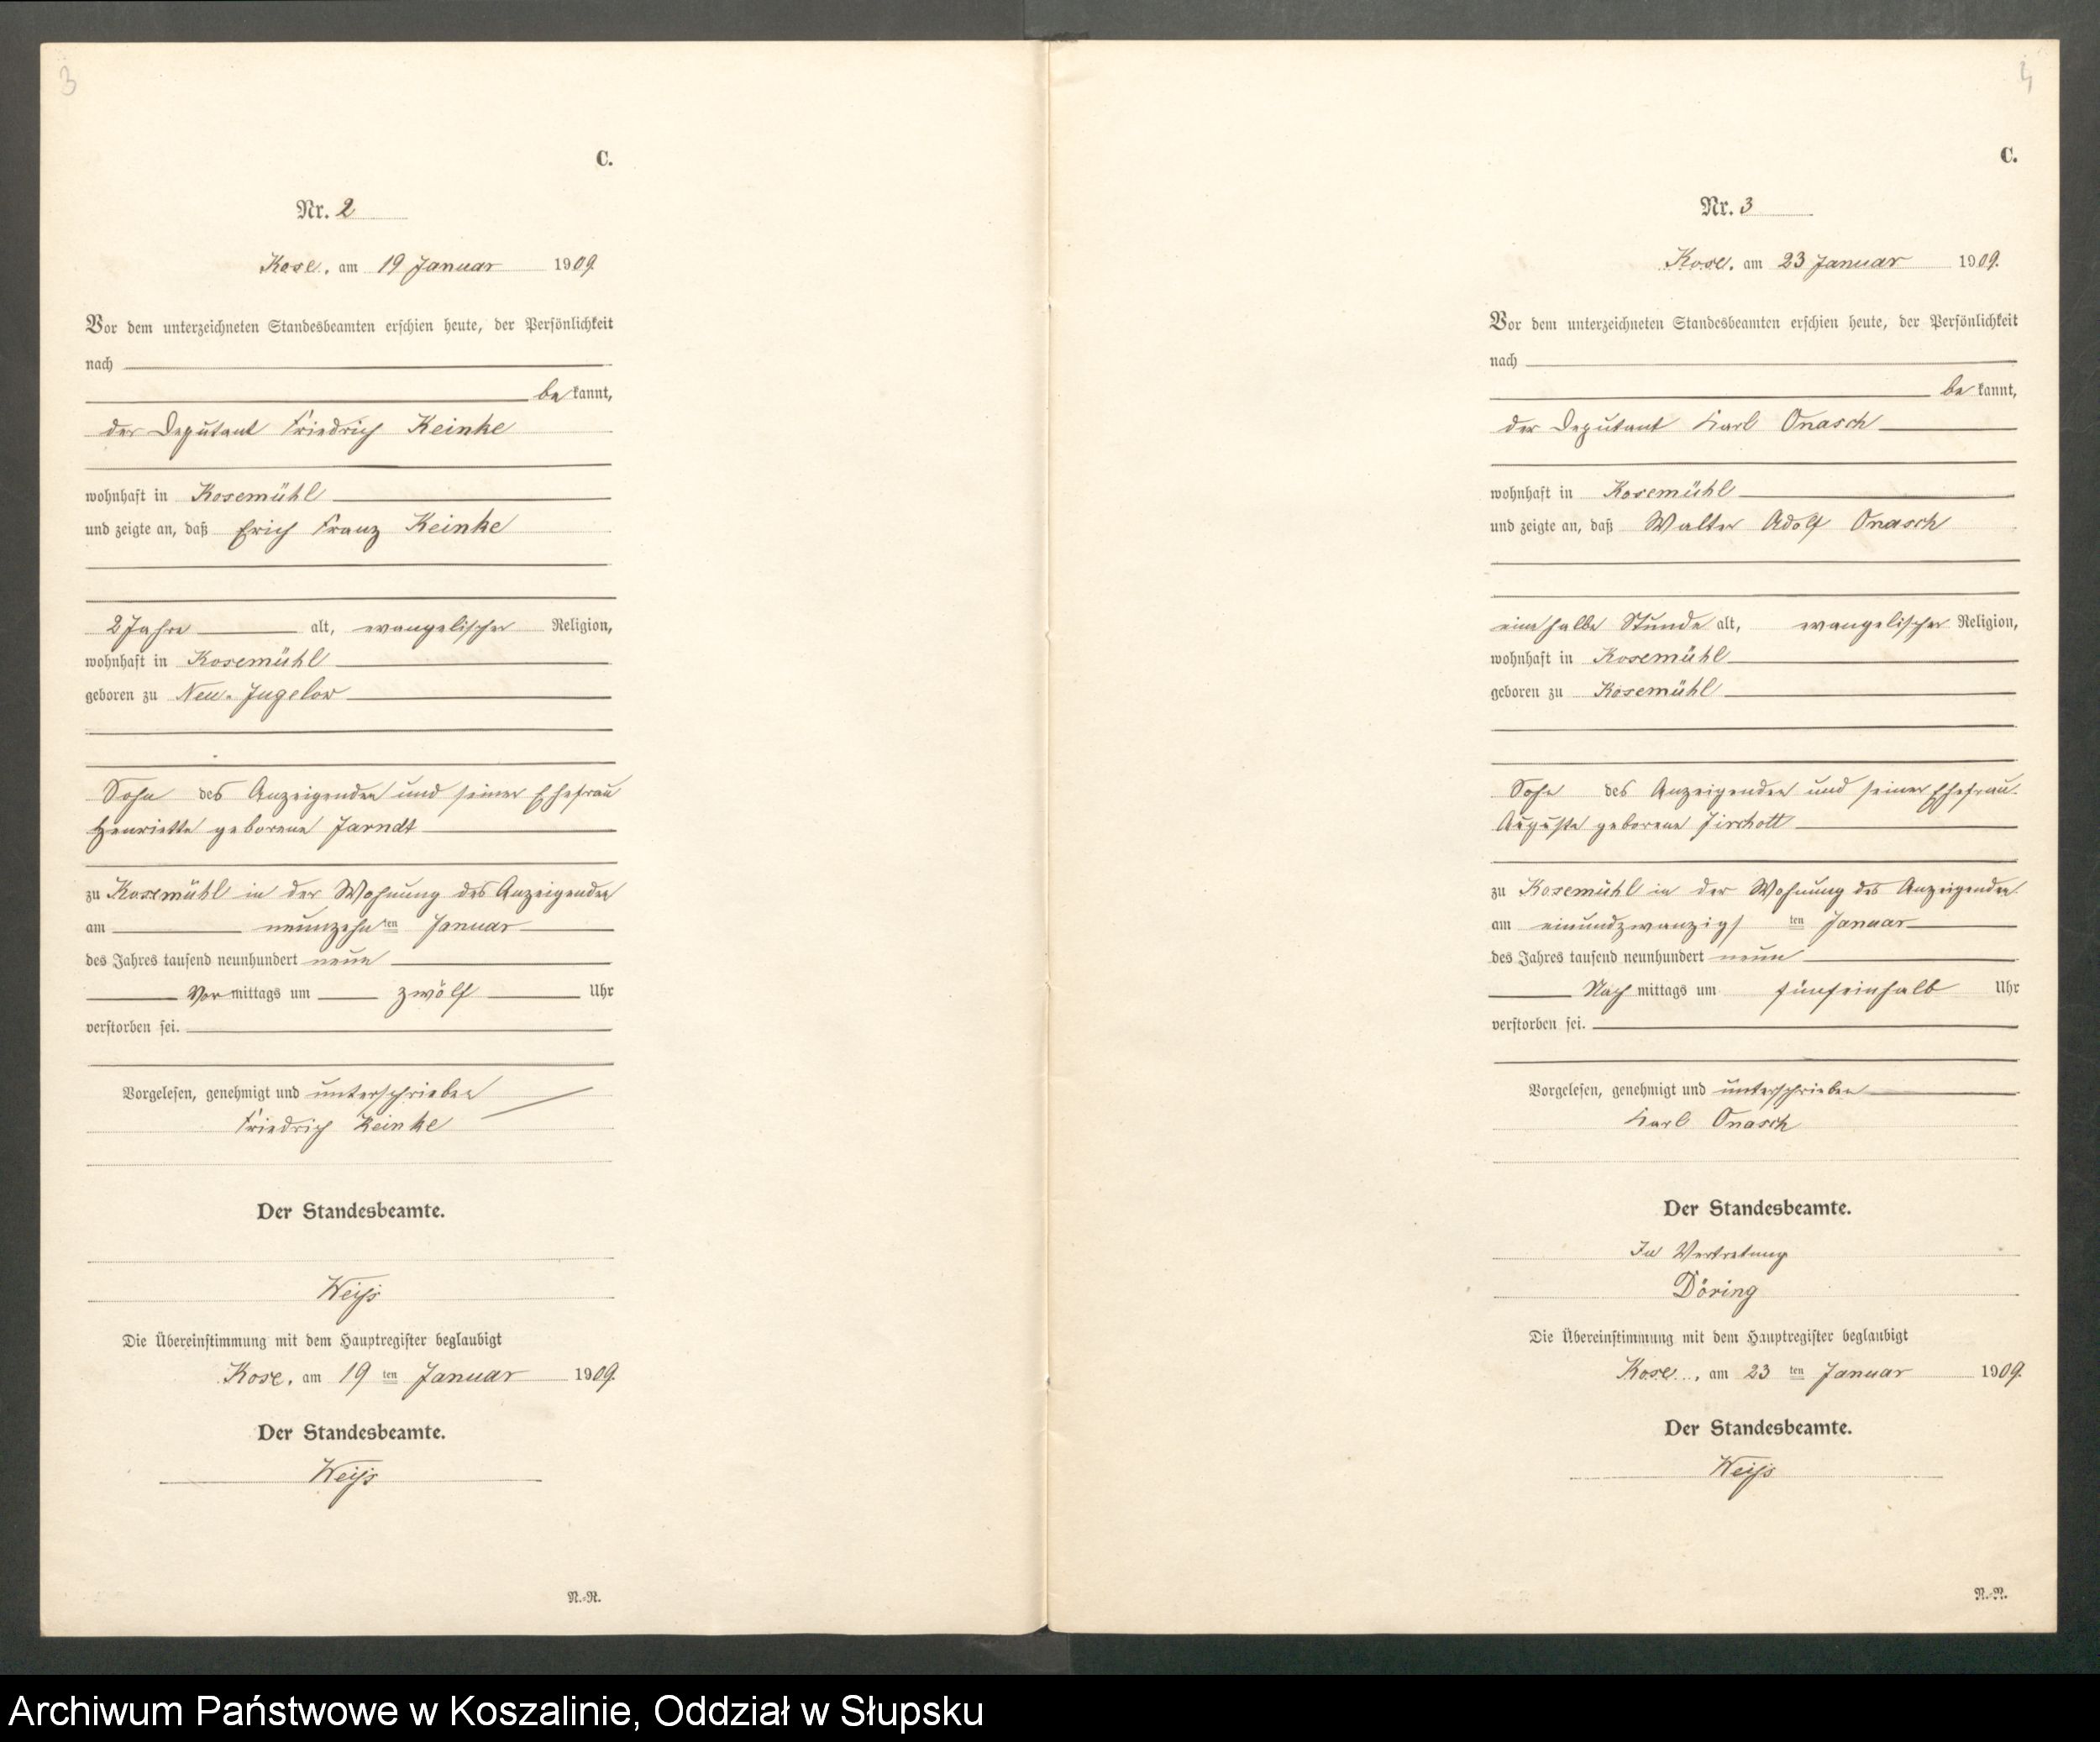 3
C.
Nr. 2
Kose, am 19 Januar 1909.
Vor dem unterzeichneten Standesbeamten erschien heute, der Persönlichkeit
nach
bekannt,
der Deputant Friedrich Reinke
wohnhaft in Kosemühl
und zeigte an, daß Erich Franz Reinke
2 Jahre alt, evangelischer Religion,
wohnhaft in Kosemühl
geboren zu Neu-Jugelow
Sohn des Anzeigenden und seiner Ehefrau
Henriette geborene Jarndt
zu Kosemühl in der Wohnung des Anzeigenden
am neunzehnten Januar
des Jahres tausend neunhundert neun
Vormittags um zwölf Uhr
verstorben sei.
Vorgelesen, genehmigt und unterschrieben
Friedrich Reinke
Der Standesbeamte.
Weiß
Die Übereinstimmung mit dem Hauptregister beglaubigt
Kose, am 19 ten Januar 1909.
Der Standesbeamte.
Weiß
N.-N.
4
C.
Nr. 3
Kose, am 23 Januar 1909.
Vor dem unterzeichneten Standesbeamten erschien heute, der Persönlichkeit
nach
bekannt,
der Deputant Karl Onasch
wohnhaft in Kosemühl
und zeigte an, daß Walter Adolf Onasch
eine halbe Stunde alt, evangelischer Religion,
wohnhaft in Kosemühl
geboren zu Kosemühl
Sohn des Anzeigenden und seiner Ehefrau
Auguste geborene
zu Kosemühl in der Wohnung des Anzeigenden
am einundzwanzigsten Januar
des Jahres tausend neunhundert neun
Nachmittags um fünfeinhalb Uhr
verstorben sei.
Vorgelesen, genehmigt und unterschrieben
Karl Onasch
Der Standesbeamte.
In Vertretung
Döring
Die Übereinstimmung mit dem Hauptregister beglaubigt
Kose, am 23 ten Januar 1909.
Der Standesbeamte.
Weiß
N.-N.
Archiwum Państwowe w Koszalinie, Oddział w Słupsku